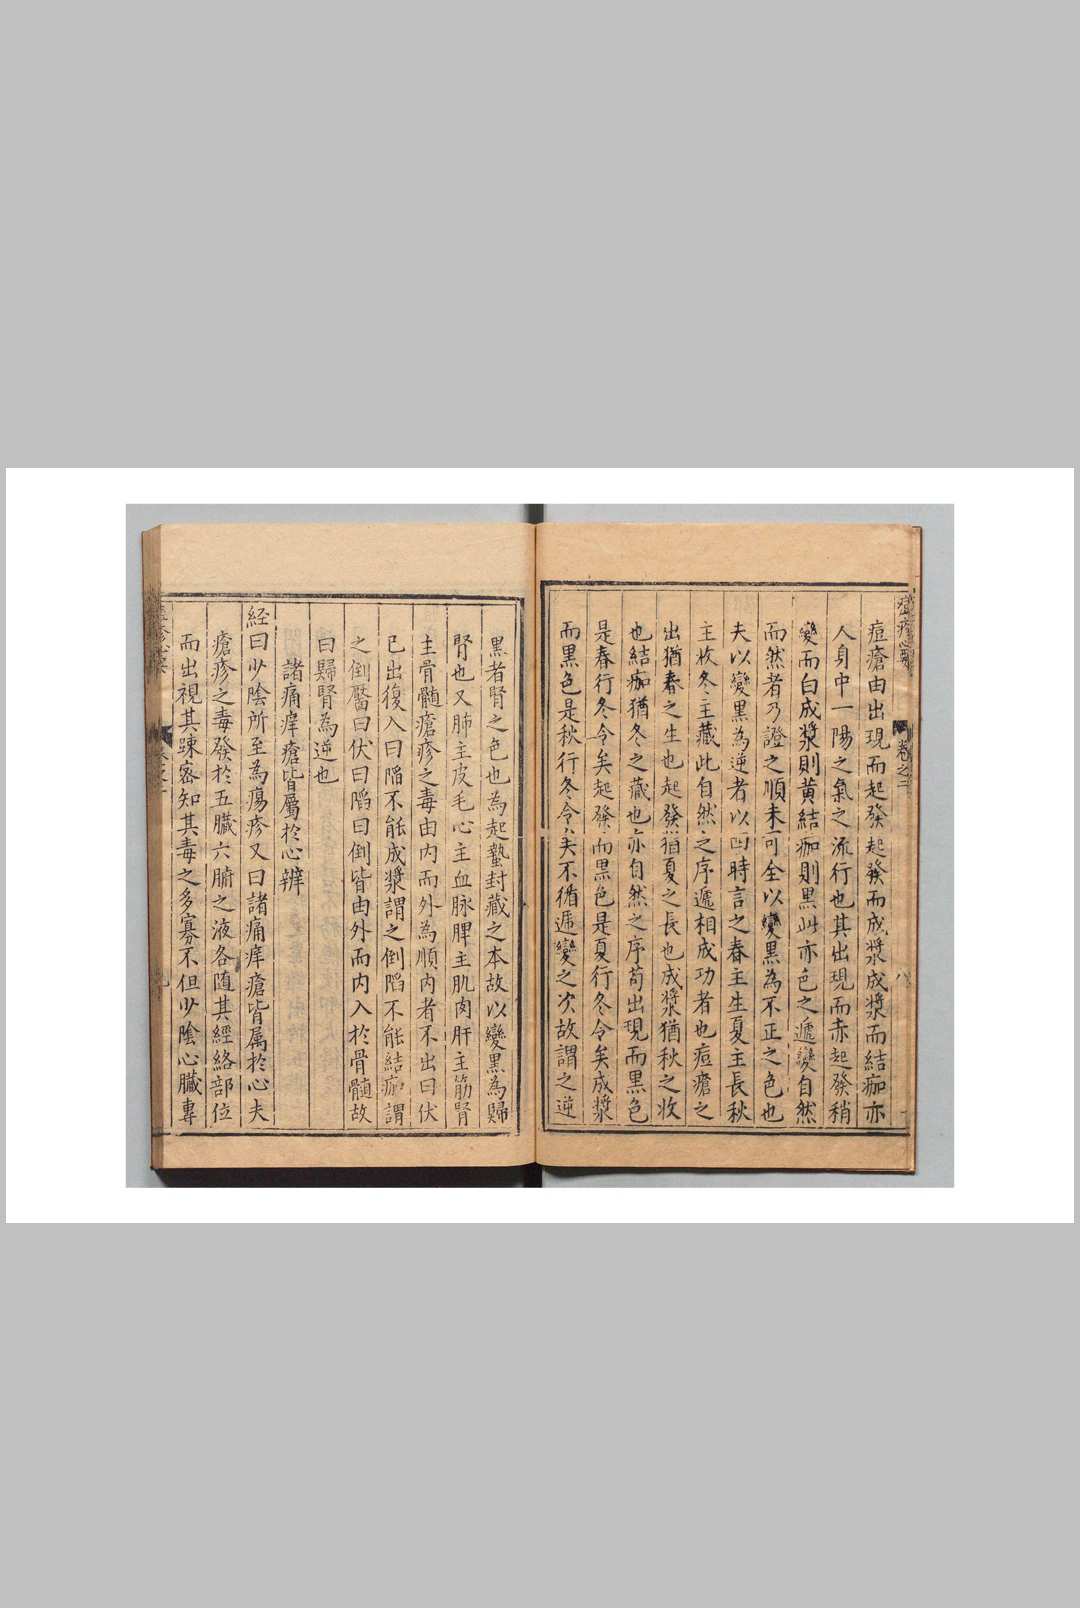 痘瘡由出現而起發起發而成漿成漿而結痂亦
人身中一陽之氣之流行也其出現而赤起發稍
變而白成漿則黄結痂則黒此亦色之遞變自然
而然者乃證之順未可全以變黒為不正之色也
夫以變黒為逆者以四時言之春主生夏主長秋
主收冬主藏此自然之序遞相成功者也痘瘡之
出猶春之生也起發猶夏之長也成漿猶秋之收
也結痂猶冬之藏也亦自然之序苟出現而黒色
是春行冬令矣起發而黒色是夏行冬令矣成漿
而黒色是秋行冬令矣夫不循遞變之次故謂之逆
黒者腎之色也為起蟄封藏之本故以變黒為歸
腎也又肺主皮毛心主血脉脾主肌肉肝主筋腎
主骨髓瘡疹之毒由内而外為順内者不出曰伏
已出復入曰陷不能成漿謂之倒陷不能結痂謂
之倒靨曰伏曰陷曰倒皆由外而内入於骨髓故
曰歸腎為逆也
諸痛痒瘡皆屬於心辨
経曰少陰所至為瘍疹又曰諸痛痒瘡皆属於心夫
瘡疹之毒發於五臟六腑之液各随其經絡部位
而出視其踈密知其毒之多寡不但少陰心臟專
卷之二